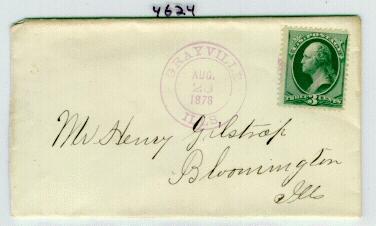 4624
GRAYVILLE
AUG.
23
1878
ILLS.
U.S. POSTAGE
THREE 3 CENTS
Mr Henry Gilstrap
Bloomington
Ills